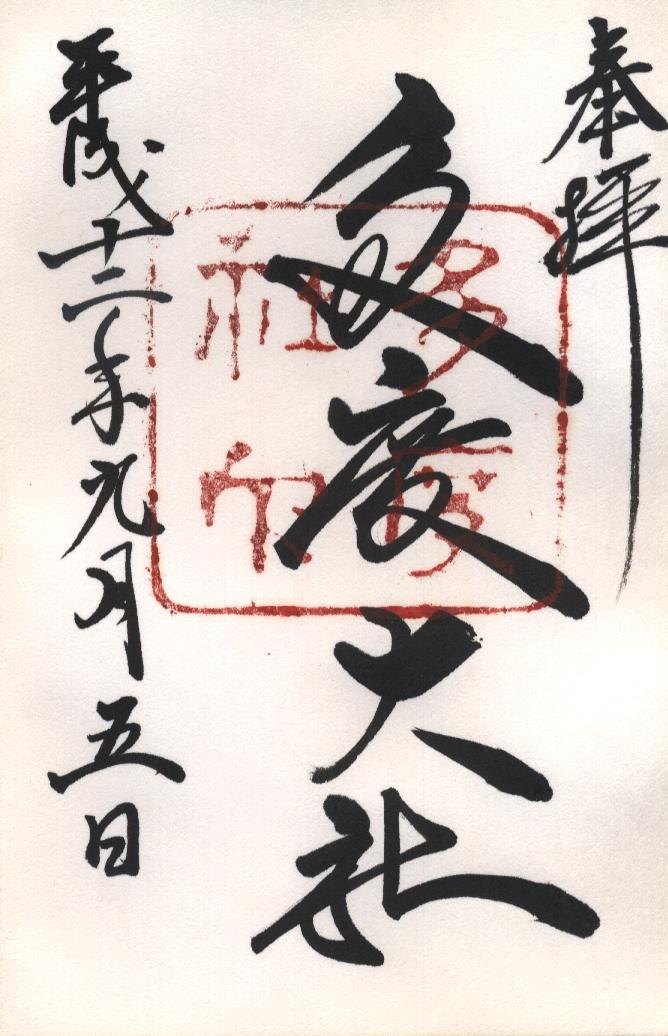 奉拝
多度大社
多度
社印
平成十二年九月五日